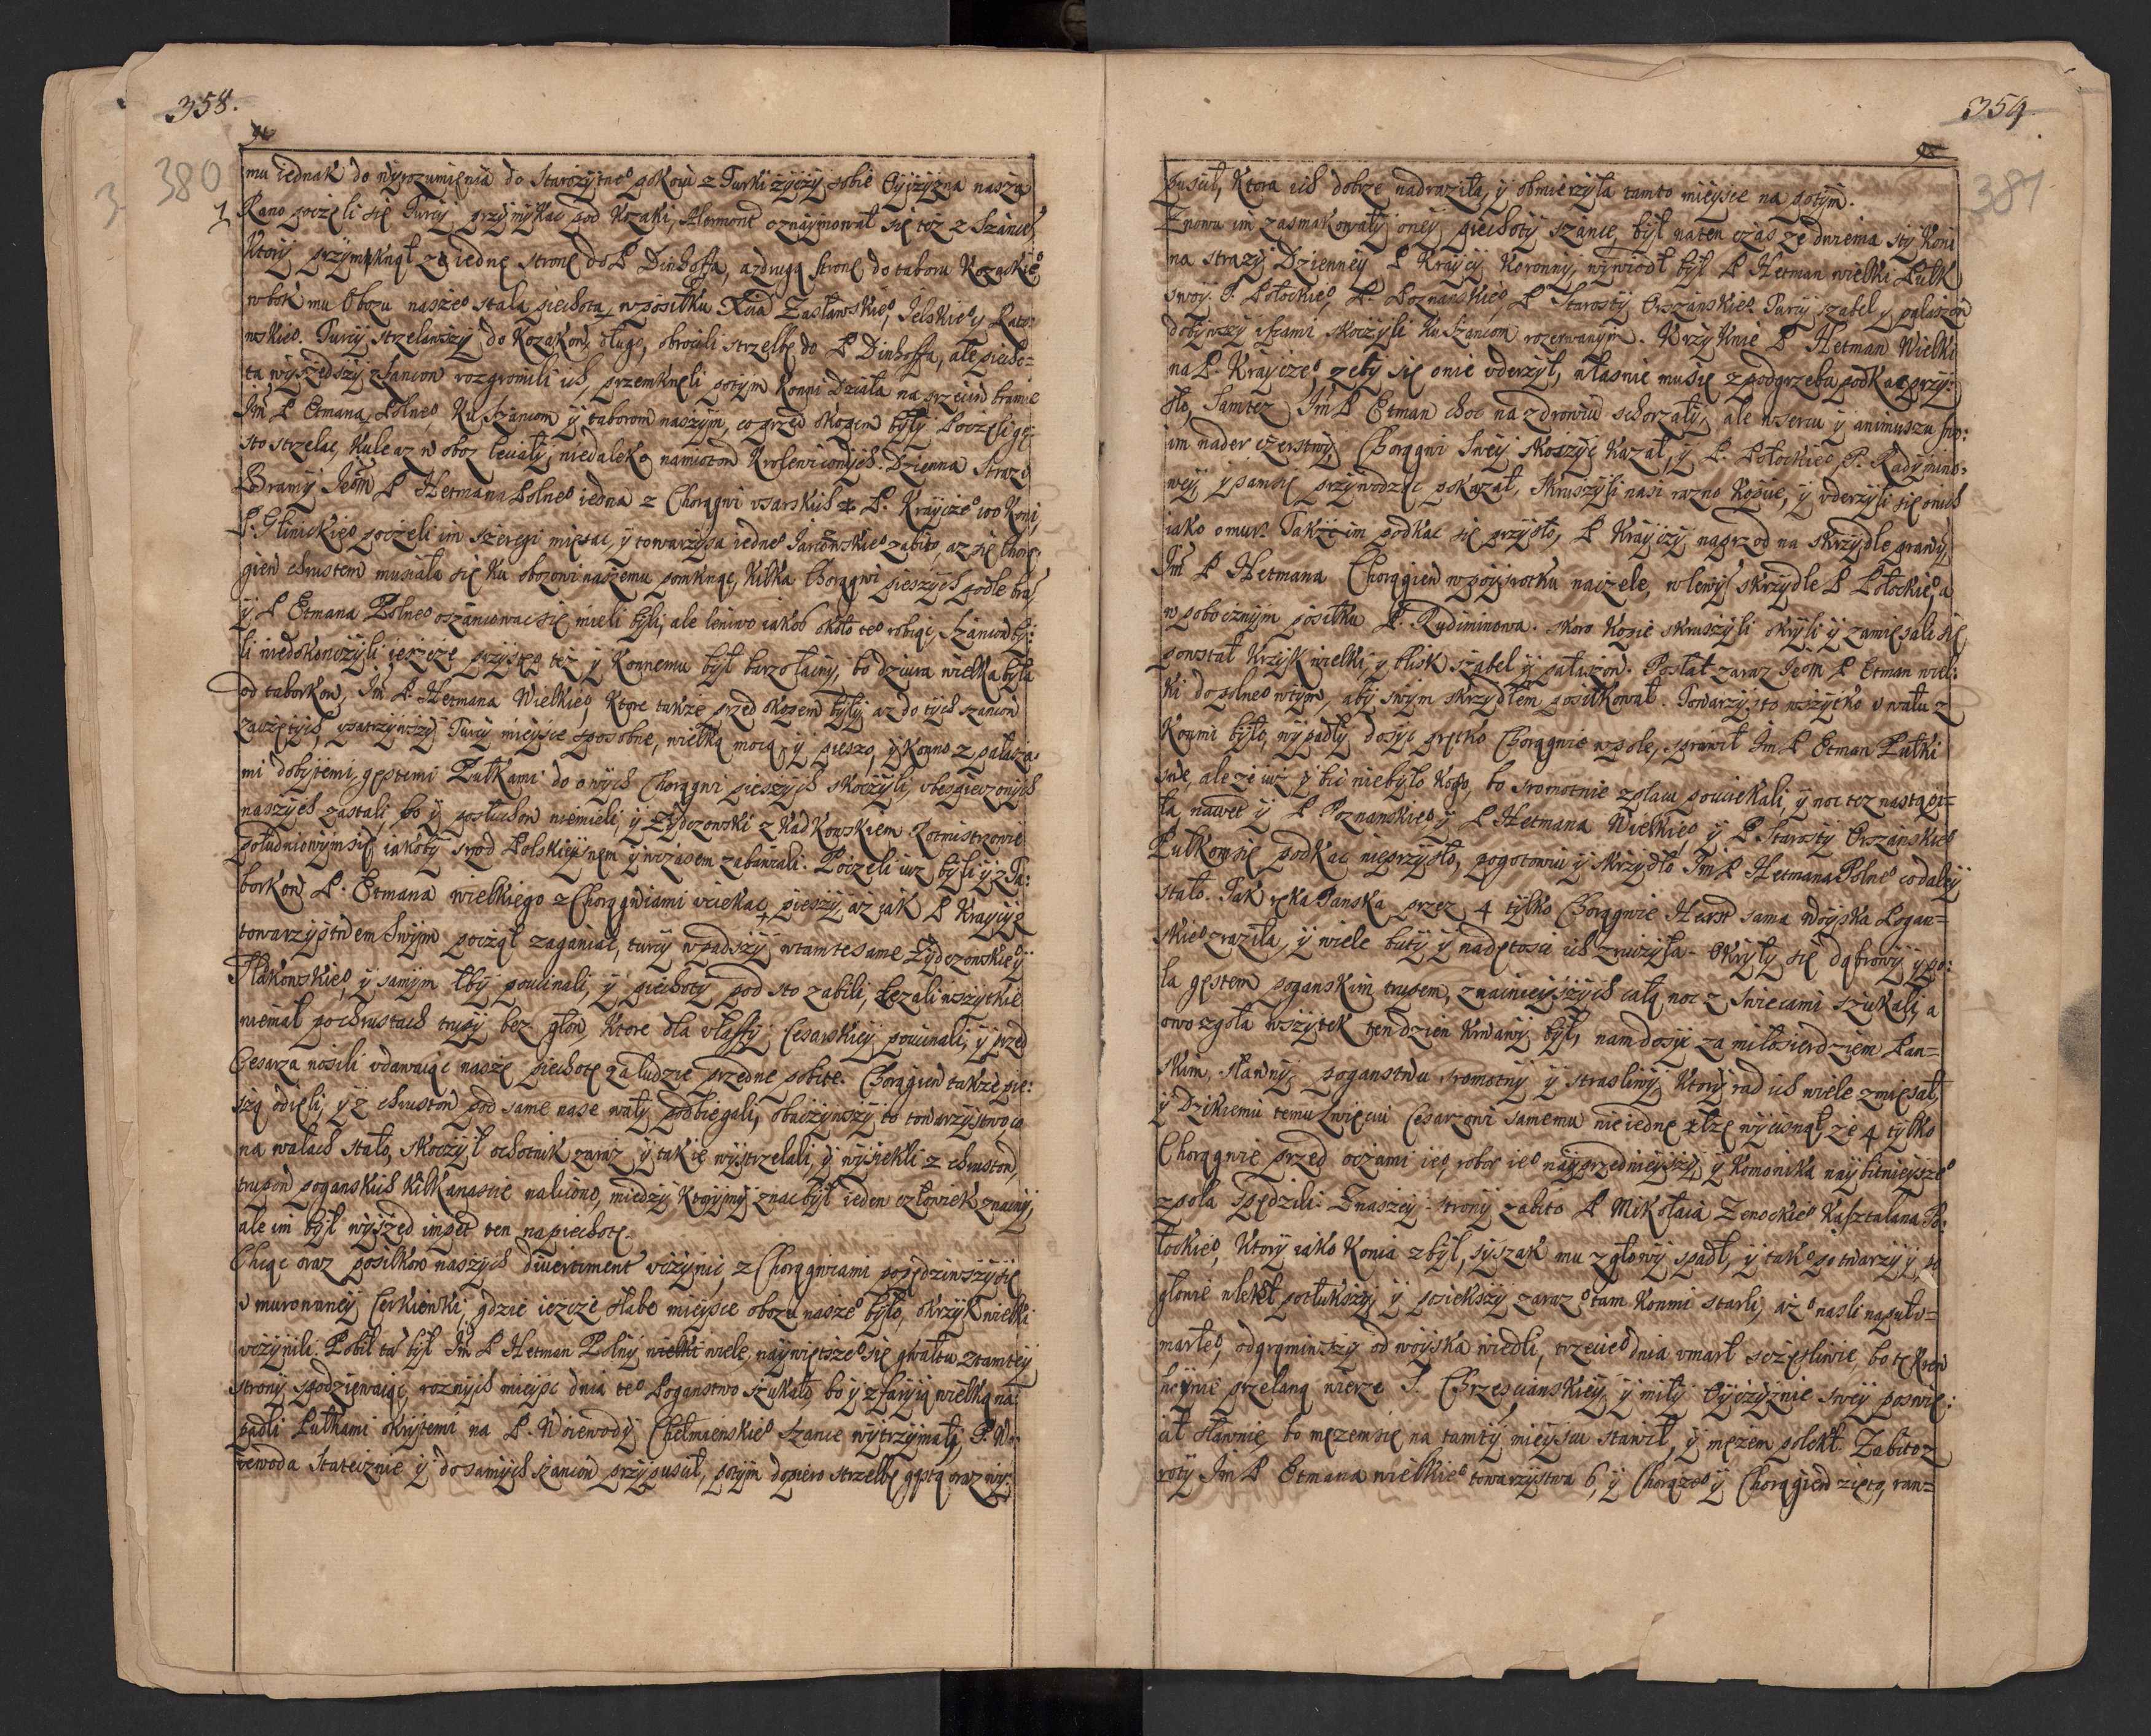 358.
380
3
mu iednak do wyrozumięnia do Starożytneo pokoiu z Turki życzy sobie Oyczyzna nasza
7 Rano poczęli się Turcy przymykac pod Kozaki, Alermont oznaymował się też z Szancem
Ktory przymknął ze iednę stronę do P Dinhoffa, a zdrugą stronę do taboru Kozaskieo
w bok mu Obozu naszeo stała piechota, w posiłku Xcia Zasławskieo, Jelskieo y Rato:
wskieo. Turcy strzelawszy do Kozakow długo, obrocili strzelbę do P Dinhoffa, ale piecho-
ta wyszedszy z szancow rozgromili ich, przemknęli potym konni Działa na przeciw bramie
Jm P Etmana Polneo, Ku Szancom y taborom naszym, co przed okopem były. Poczęli gę-
sto strzelac, Kule az w oboz leciały, niedaleko namiotow Krolewicowych. Dzienna Straz v
Bramy Jeom P Hetmana Polneo iedna z Chorągwi vsarskich P. Kraycze 100 Koni,
P. Glinickieo poczeli im szeregi mięszac, y towarzysza iedneo Jarcowskieo zabito, az się Chorą:
giew chrustem musiała się Ku obozowi naszemu pomknąc, Kilka Chorągwi pieszych podle bra
y P Etmana Polneo oszancowac się mieli byli, ale leniwo iakos około teo robiąc, Szancow by:
li niedokonczyli ieszcze przystęp tez y Konnemu był barzo łacny, bo dziura wielka była
od taborkow Jm P. Hetmana Wielkieo, Ktore także przed okopem były, az do tych szancow
zaczętych, vpatrzywszy Turcy mieysce sposobne, wielką mocą y pieszo, y Konno z pałasza
mi dobytemi, gęstemi Pułkami do owych Chorągwi pieszych skoczyli, vbespieczonych
naszych zastali, bo y posłuchow niemieli, y Zydczowski z Kadkowskiem Rotmistrzowie
południowym się iakoby srod Polskiey snem y wczasem zabawiali. Poczeli iuz byli y z Ta:
borkow P. Etmana wielkiego z Chorągwiami vciekac pieszy, az iak P Krayczy z
towarzystwem Swym począł zaganiac, turcy wpadszy w tamte same Zydczowskie y
Hakowskieo, y samym łby poucinali, y piechoty pod sto zabili, Lezali wszytkie
niemal po chrustach trupy bez głow, Ktore dla vłaffy Cesarskiey poucinali, y przed
Cesarza nosili vdawaiąc naszę piechotę za ludzie przedne pobite. Chorągiew także pie:
szą odięli, y z chrustow pod same nase wały podbiegali, obaczywszy to towarzystwo co
na wałach stało, skoczył ochotnik zaraz y takie wystrzelali, y wysiekli z chrustow,
trupow poganskich Kilkanascie naliczono, między Ktorymy znac był ieden człowiek znaczny,
ale im był wyszed impet ten na piechotę.
Chcąc oraz posilkow naszych divertiment vczynic, z Chorągwiami popędziwszy się
v murowaney Cerkiewki, gdzie ieszcze słabe mieysce obozu naszeo było, okrzyk wielki
vczynili. Pobił ta był Jm P Hetman Polny wielki wiele, naywiętszeo się gwałtu z tamtey
strony spodziewaiąc, roznych mieysc dnia teo Poganstwo szukało, bo y z faryią wielką na
padli Pułkami okrytemi na P. Woiewody Chełmienskieo szance wytrzymały, P. Wo
iewoda Statecznie y do samych szancow przypuscił, potym dopiero strzelbę gęstą oraz wy
359.
381
puscił, Ktora ich dobrze nadraziła, y obmierzyła tamto mieysce na potym.
Znowu im zasmakowały oney piechoty szance, był na ten czas ze dwiema sty Koni
na strazy Dzienney P Krayczy Koronny, wywiodł był P Hetman wielki Pułk
swoy. P. Potockieo, P. Poznanskieo, P Starosty Orszanskieo. Turcy szabel y pałaszow
dobywszy ssami skoczyli Ku Szancom rozerwanym. Krzyknie P Hetman Wielki
na P. Krayczeo, zeby się onie vderzył, własnie mu się z podgrzeba podkac przy:
sło, Tamtez Jm P Etman choc na zdrowiu schorzały, ale w sercu y animuszu swo:
im nader czerstwy Chorągwi Swey skoczyc Kazał, y P. Potockieo, P. Radymino:
wey, y sam się przywodząc pokazał, skruszyli nasi razno Kopiie, y vderzyli się onich
iako o mur. Takze im podkac się przysło, P Krayczy naprzod na skrzydle prawy,
Jm P Hetmana Chorągiew w pojsrodku na czele, w lewy skrzydle P Potockie, a
w pobocznym posiłku P. Rudiminowa. skoro Kopie skruszyli okryli y zamięsali się
powstał Krzyk wielki, y blisk szabel y pałaszow. Posłał zaraz Jeom P Etman wiel:
ki do polneo w tym, aby swym skrzydłem posiłkował. Towarzysto wszytko v wału z
Konmi było, wypadły dosyc prętko Chorągwie w pole, sprawił Jm P Etman Pułki
swe, ale ze iuż y bic niebyło Kogo, bo sromotnie z placu pouciekali, y noc tez nastąpi=
ła, nawet y P Poznanskieo y P Hetmana Wielkieo, y P. Starosty Orszanskieo
Pułkom się podkac nieprzysło, pogotowiu y skrzydło Jm P Hetmana Polneo co daley
stało. Tak ręka Panska przez 4 tylko Chorągwie Hearst sama woyska Pogan=
skieo zraziła, y wiele buty y nadętosci ich zniżyła. Okryły się dąbrowy y po:
la gęstem poganskim trupem, znacnieyszych całą noc z Swiecami szukali, a
owo zgoła wszytek ten dzien Krwawy był, nam dosyc za miłosierdziem Pan=
skim, sławny, poganstwu sromotny y strasliwy, Ktory rad ich wiele zmięsał,
y Dzikiemu temu Zwięciu Cesarzowi samemu nie iednę łzę wycisnął, ze 4 tylko
Chorągwie przed oczami ieo, robor ieo nayprzednieyszy, y Komonika naybitnieyszeo
z pola spędzili. Z naszey strony zabito P Mikołaia Zenockieo Kasztalana Po:
łockieo, Ktory iako Konia zbył, syszak mu z głowy spadł, y tako po twarzy y, po
głowie wlekł potłukszy y posiekszy zaraz otam Konmi starli, az onasli napułu=
marłeo, odgrąminszy od woyska wiedli, trzecieo dnia vmarł sczęsliwie, bo tę Krew
hoynie przelaną wierze S. Chrzesciianskiey, y miły Oyczyznie swey poswię:
cił sławnie, bo męzem się na tamty mieyscu stawił, y męzem polekł. Zabito z
roty Jm P Etmana wielkieo towarzystwa 6, y Chorązeo y Chorągiew zięto, ran=